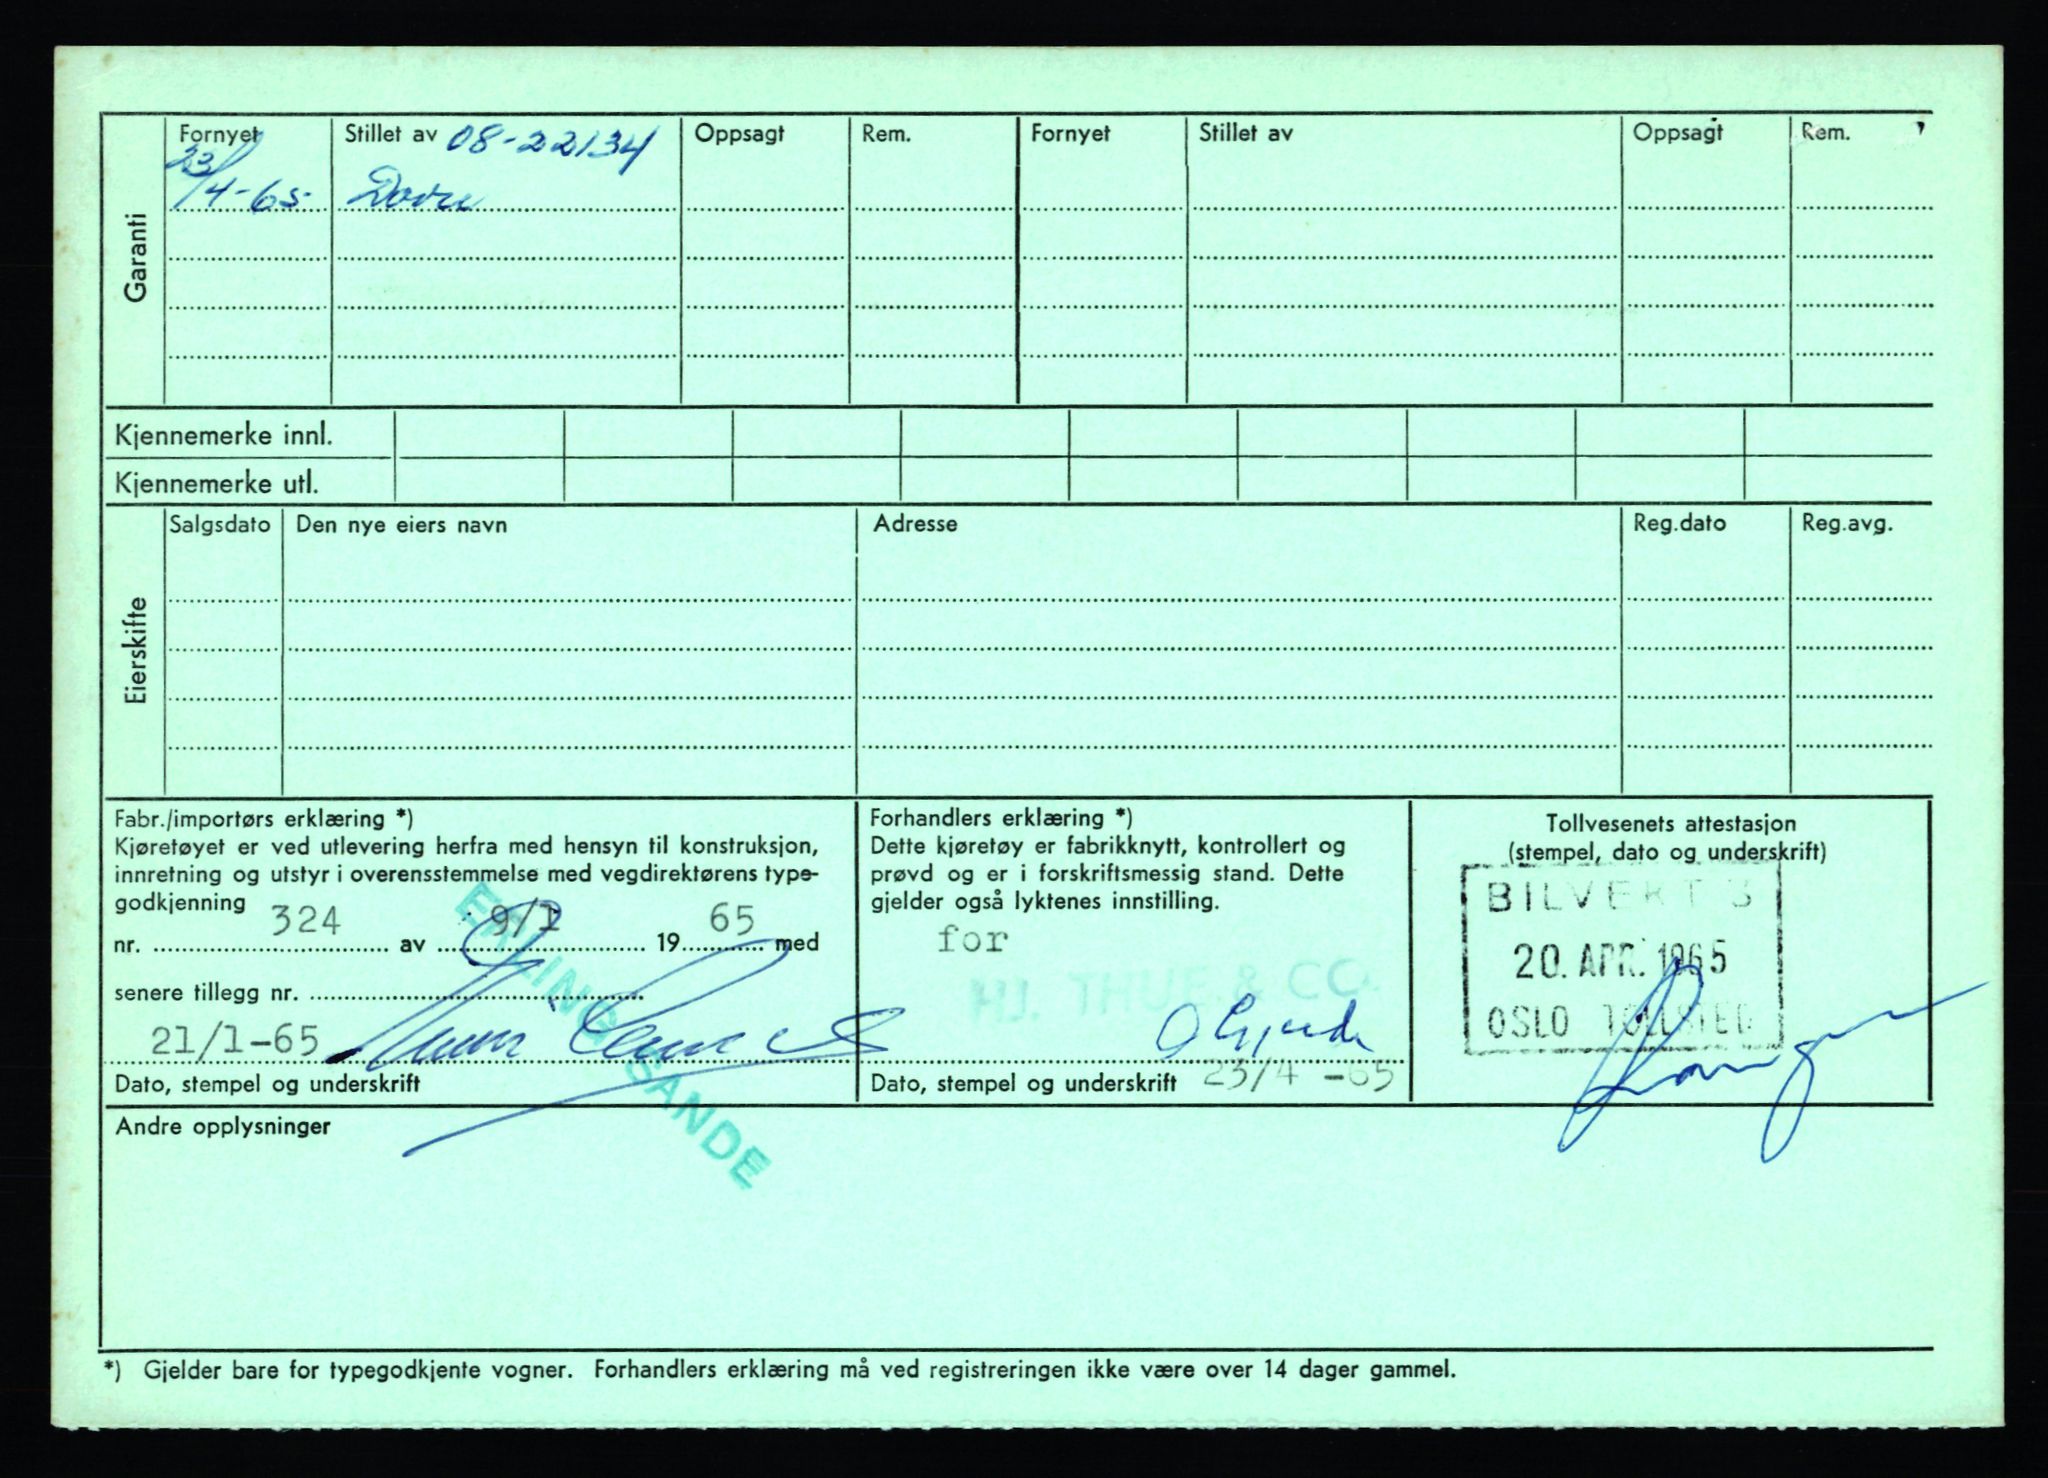 Garanti
Fornyet Stillet av 08-22134 Oppsagt Rem. Fornyet Stillet av Oppsagt Rem.
23/4-65 Dovre
Kjennemerke innl.
Kjennemerke utl.
Eierskifte
Salgsdato Den nye eiers navn Adresse Reg.dato Reg.avg.
Fabr./importørs erklæring *)
Kjøretøyet er ved utlevering herfra med hensyn til konstruksjon,
innretning og utstyr i overensstemmelse med vegdirektørens type-
godkjenning
nr. 324 av 9/1 19 65 med
senere tillegg nr.
21/1-65
ERLING SANDE
Dato, stempel og underskrift
Forhandlers erklæring *)
Dette kjøretøy er fabrikknytt, kontrollert og
prøvd og er i forskriftsmessig stand. Dette
gjelder også lyktenes innstilling.
for
HJ. THUE & CO.
O Gjerde
Dato, stempel og underskrift 23/4 -65
Tollvesenets attestasjon
(stempel, dato og underskrift)
BILVERKT 3
20. APR. 1965
OSLO TOLLSTED
Andre opplysninger
*) Gjelder bare for typegodkjente vogner. Forhandlers erklæring må ved registreringen ikke være over 14 dager gammel.